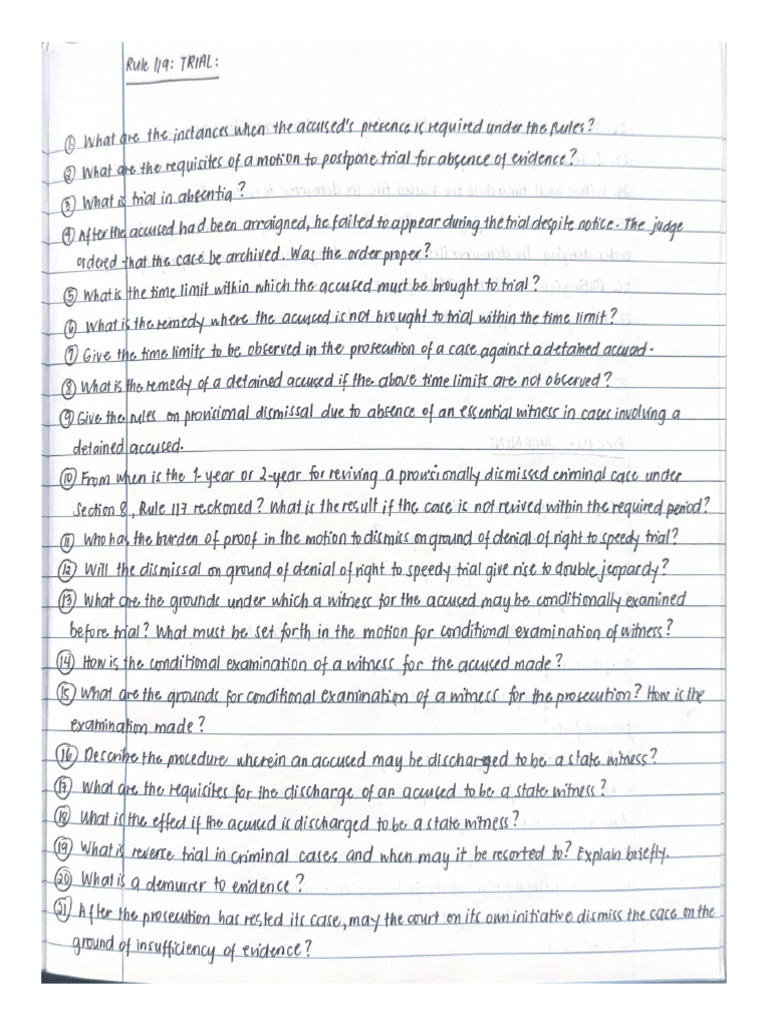 Rule 119: TRIAL:
① What are the instances when the accused's presence is required under the Rules?
② What are the requisites of a motion to postpone trial for absence of evidence?
③ What is trial in absentia?
④ After the accused had been arraigned, he failed to appear during the trial despite notice. The judge
ordered that the case be archived. Was the order proper?
⑤ What is the time limit within which the accused must be brought to trial?
⑥ What is the remedy where the accused is not brought to trial within the time limit?
⑦ Give the time limits to be observed in the prosecution of a case against a detained accused.
⑧ What is the remedy of a detained accused if the above time limits are not observed?
⑨ Give the rules on provisional dismissal due to absence of an essential witness in cases involving a
detained accused.
⑩ From when is the 1-year or 2-year for reviving a provisionally dismissed criminal case under
Section 8, Rule 117 reckoned? What is the result if the case is not revived within the required period?
⑪ Who has the burden of proof in the motion to dismiss on ground of denial of right to speedy trial?
⑫ Will the dismissal on ground of denial of right to speedy trial give rise to double jeopardy?
⑬ What are the grounds under which a witness for the accused may be conditionally examined
before trial? What must be set forth in the motion for conditional examination of witness?
⑭ How is the conditional examination of a witness for the accused made?
⑮ What are the grounds for conditional examination of a witness for the prosecution? How is the
examination made?
⑯ Describe the procedure wherein an accused may be discharged to be a state witness?
⑰ What are the requisites for the discharge of an accused to be a state witness?
⑱ What is the effect if the accused is discharged to be a state witness?
⑲ What is reverse trial in criminal cases and when may it be resorted to? Explain briefly.
⑳ What is a demurrer to evidence?
㉑ After the prosecution has rested its case, may the court on its own initiative dismiss the case on the
ground of insufficiency of evidence?